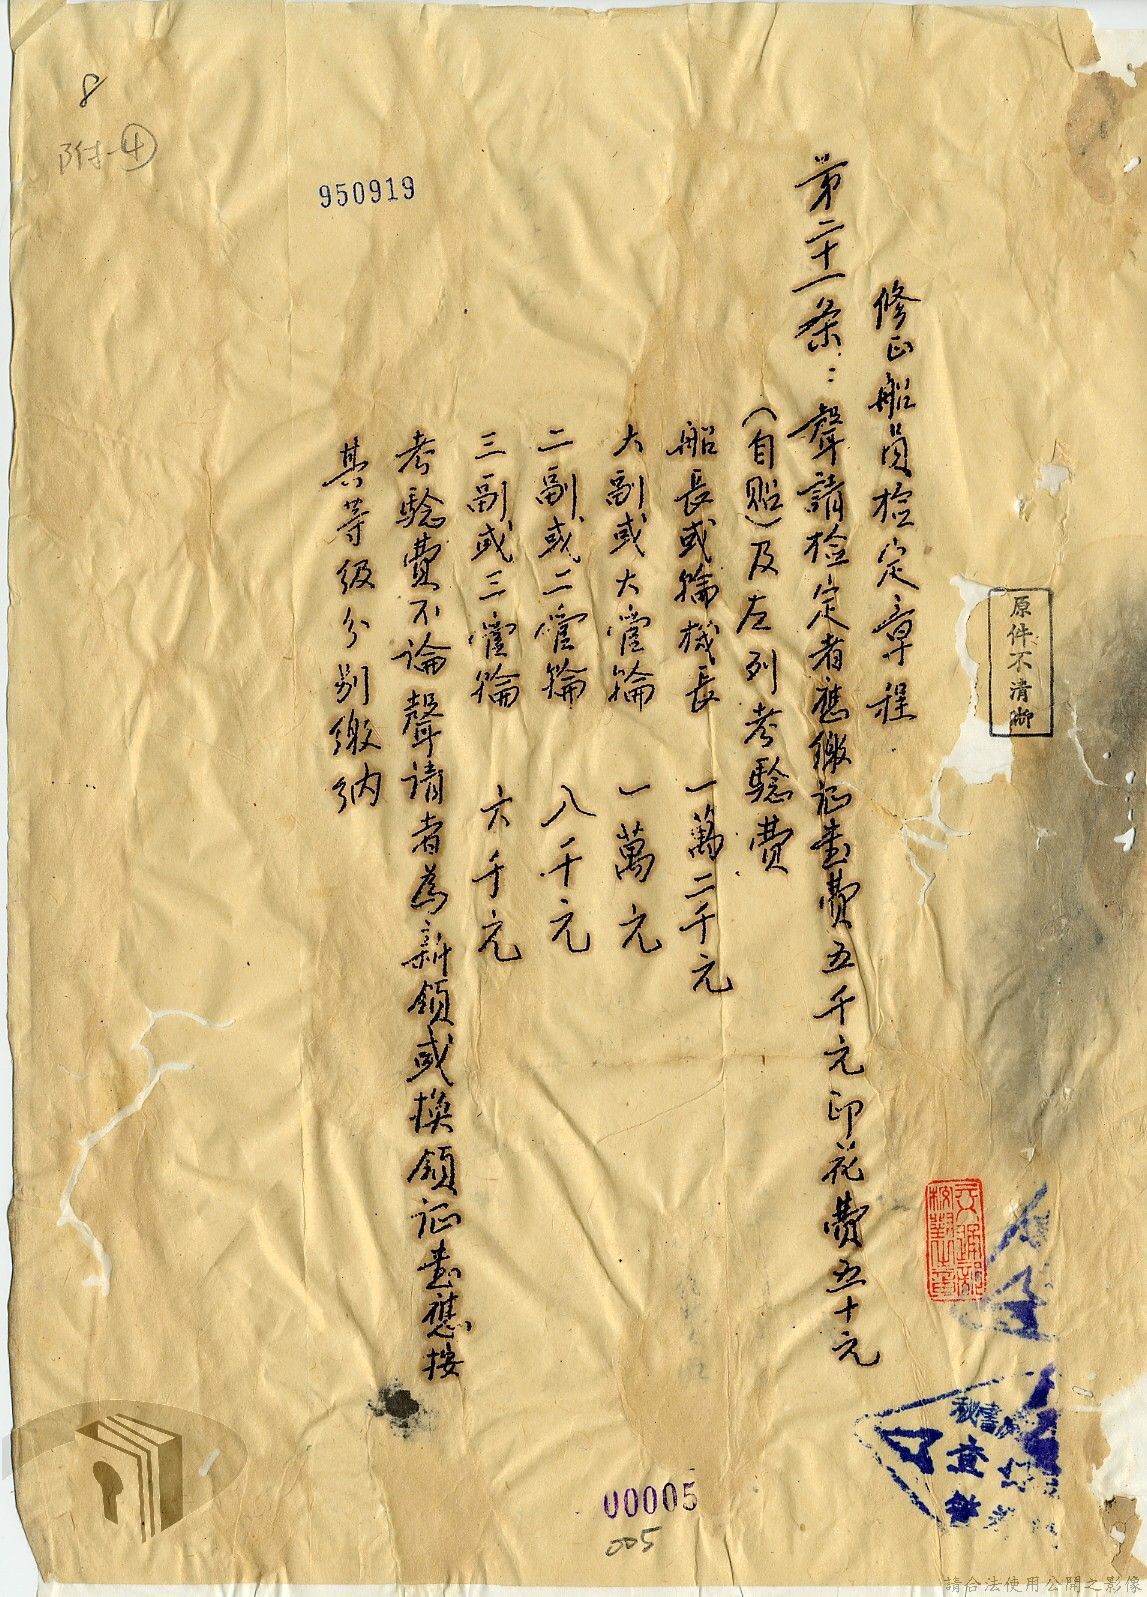 修正船員檢定章程
第二十一条：聲請檢定者應繳证書費五千元印花費五十元
（自貼）及左列考驗費
船長或輪機長　一萬二千元
大副或大管輪　一萬元
二副或二管輪　八千元
三副或三管輪　六千元
考驗費不論聲請者為新領或換領证書應按
其等級分別繳納
原件不清晰
950919
8
附-④
交通部
校對之章
秘書
查
00005
005
請合法使用公開之影像